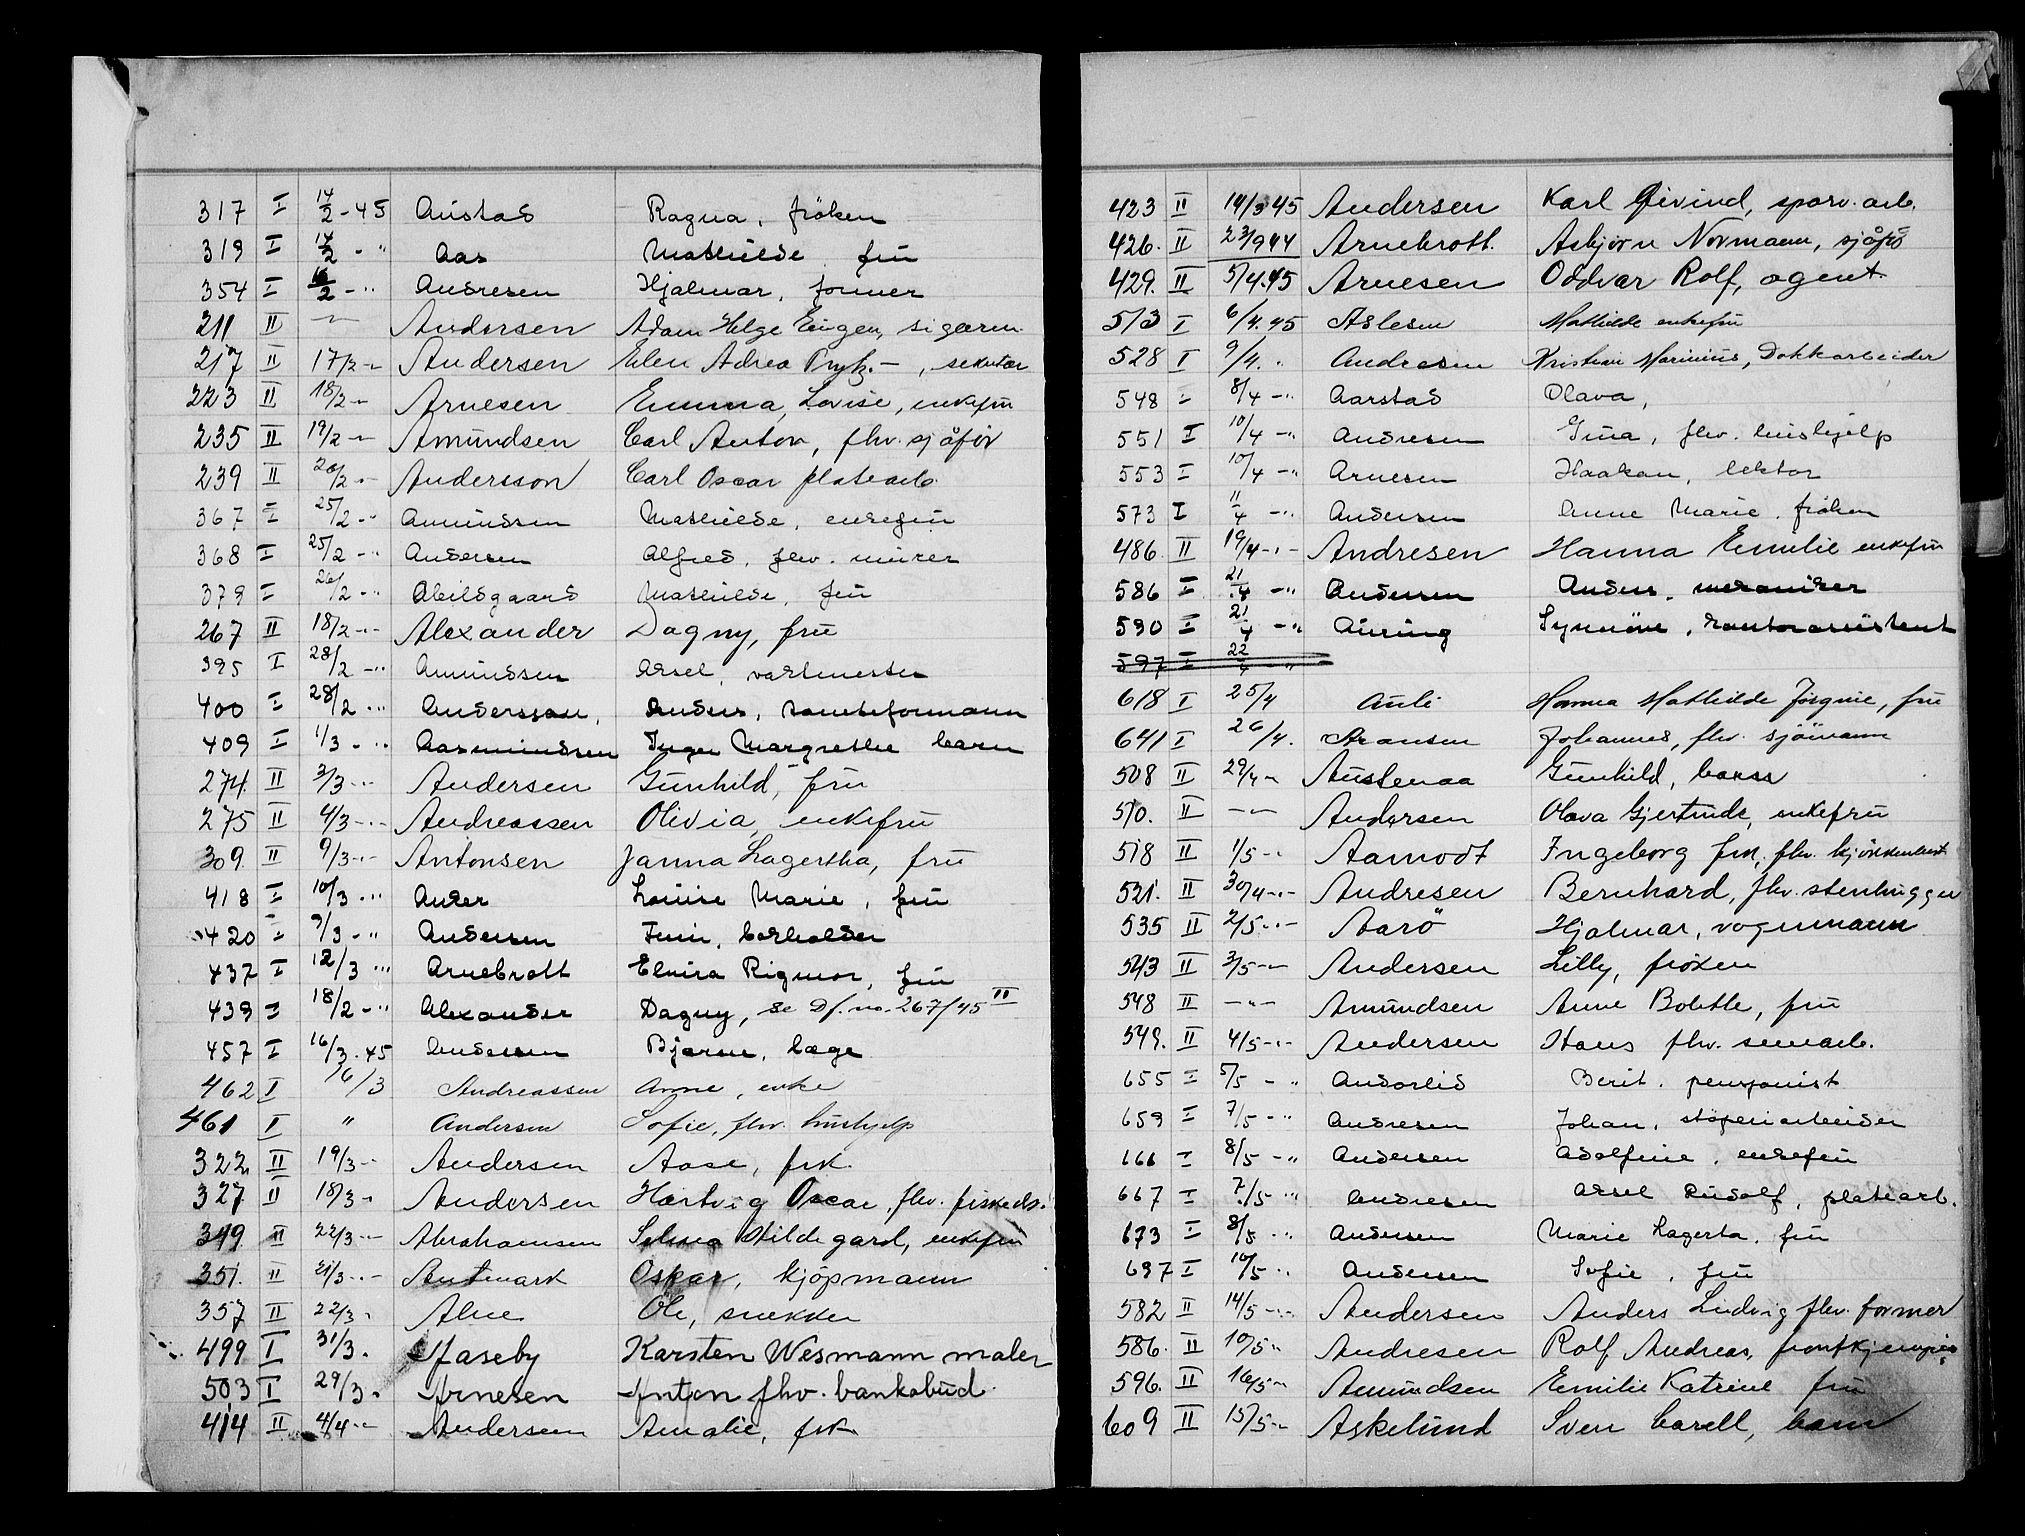 317 I 14/2 -45 Austad Ragna, fröken
319 I 14/2 - " Aas Mathilde fru
354 I 16/2 - " Andresen Hjalmar, former
211 II — Andersen Adam Helge Eugen, sigarm.
217 II 17/2 - Andersen Elen Adrea
223 II 18/2 - Arnesen Emma, Lovise, enkefru
235 II 19/2 - Amundsen Carl Anton, fhv. sjåfør
239 II 20/2 - Andersson Carl Oscar platearb.
367 I 25/2 - " Amundsen Mathilde, enkefru
368 I 25/2 - " Andersen Alfred, fhv. murer
379 I 26/2 - " Abildgaard Mathilde, fru
267 II 18/2 - " - Alexander Dagny, fru
395 I 28/2 - " Amundsen Aksel, vaktmester
400 I 28/2 - " Andersson, Anders, tomteformann
409 I 1/3 - " Aasmundsen Inger Margrethe barn
274 II 3/3 - " - Andersen Gunhild, fru
275 II 4/3 - " - Andreassen Olivia enkefru
309 II 9/3 - " - Antonsen Janna Lagertha, fru
418 I 10/3 - " Anker Louise Marie, fru
420 I 9/3 - " Andersen Finn, bokholder
437 I 12/3 - " Arnebrott Elvira Rigmor, fru
439 I 18/2 - " Alexander Dagny, se Df. no. 267/45 II
457 I 16/3 . 45 Andersen Bjarne, læge
462 I 16/3 Andreassen Anne, enke
461 I " Andersen Sofie, fhv. hushjelp
322 II 19/3 - Andersen Aase, frk.
327 II 18/3 - Andersen Hartvig Oscar, fhv.
349 II 22/3 - Abrahamsen Selma Hildegard, enkefru
351. II 21/3 - " - Antmark Oskar, kjøpmann
357 II 22/3 " Alne Ole, snekker
499 I 31/3 " Aaseby Karsten Wesmann maler
503 I 29/3 " Arnesen Anton fhv. bankobud.
414 II 4/4 - Andersen Amalie, frk
423 II 14/3 45 Andersen Karl Øivind, sporv. arb.
426. II 23/9 44 Arnebrott. Asbjørn Normann, sjåfør
429. II 5/4.45 Arnesen Oddvar Rolf, agent.
513 I 6/4.45 Aslesen Mathilde enkefru
528 I 9/4. " Andresen Kristian Marinius, Dokkarbeider
548 I 8/4 - " Aarstad Olava,
551 I 10/4 - " Andresen Gina, fhv. hushjelp
553 I 10/4 - " Arnesen Haakon, lektor
573 I 11/4 - " Andersen Anne Marie, frøken
486. II 19/4 - " - Andresen Hanna Emilie enkefru
586 I 21/4 - " Andersen Anders, mekaniker
590 I 21/4 - " Auring Synnöve, kontorassistent
597 I 22/4 "
618 I 25/4 Auli Hanna Mathilde Jörgine, fru
641 I 26/4. Aronsen Johannes, fhv. sjömann
508 II 29/4 " Austenaa Gunhild, barn
510. II - " - Andersen Olava Gjertrude, enkefru
518 II 1/5 - " Aamodt Ingeborg frk, fhv.
521. II 30/4 - " - Andresen Bernhard, fhv. stenhugger
535 II 2/5 - " - Aarö Hjalmar, vognmann
543 II 3/5 - " - Andersen Lilly, frøken
548 II - " - Amundsen Anne Bolette, fru
549. II 4/5 - " - Andersen Hans fhv.
655 I 5/5 - " Andorlid Berit, pensjonist
659 I 7/5 - " Andresen Johan, støperiarbeider
666 I 8/5 - " Andersen Adolfine, enkefru
667 I 7/5 " Andresen Aksel Rudolf, platearb.
673 I 8/5 " Andersen Marie Lagerta, fru
697 I 10/5 " Andersen Sofie, fru
582 II 14/5 - " - Andersen Anders Ludvig fhv. former
586. II 10/5 " Andresen Rolf Andreas, frontkjemper
596. II 16/5 " Amundsen Emilie Katrine fru
609 II 15/5 - " Askelund Sven Carell, barn